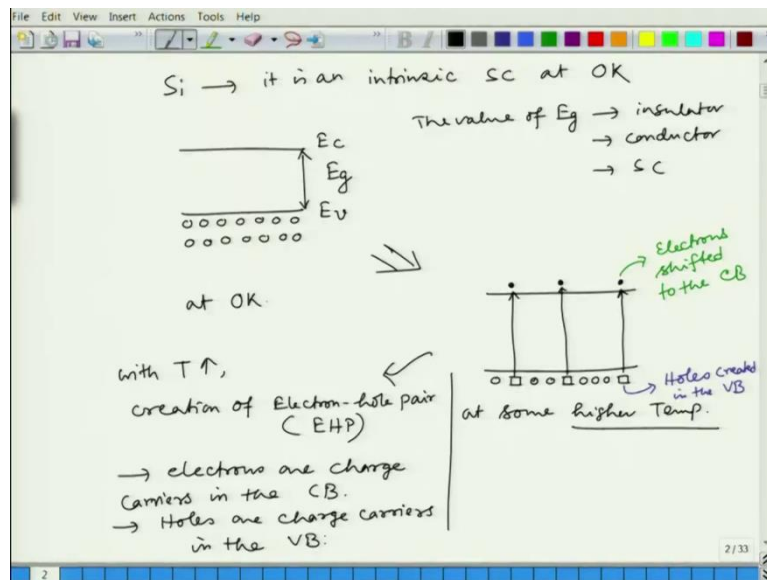 File Edit View Insert Actions Tools Help
B I
Si → it is an intrinsic SC at 0K
The value of Eg → insulator
→ conductor
→ SC
Ec
Eg
Ev
at 0K.
Electrons
shifted
to the CB
Holes created
in the VB
at some higher Temp.
with T ↑,
creation of Electron-hole pair
(EHP)
→ electrons are charge
Carriers in the CB.
→ Holes are charge carriers
in the VB.
2/33
2